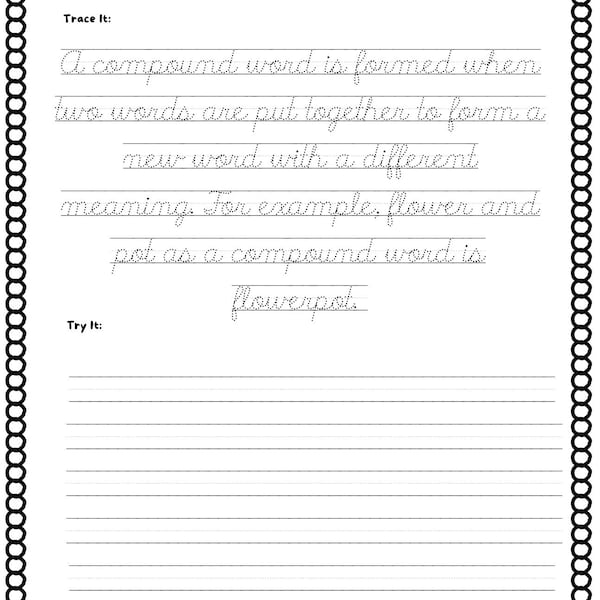 Trace It:
A compound word is formed when
two words are put together to form a
new word with a different
meaning. For example, flower and
pot as a compound word is
flowerpot.
Try It: